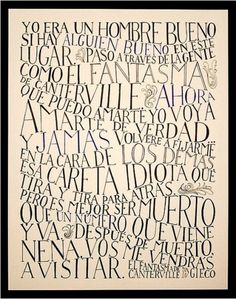 YO ERA UN HOMBRE BUENO
SI HAY ALGUIEN BUENO EN ESTE
LUGAR. PASO A TRAVES DE LA GENTE
COMO EL FANTASMA
DE CANTERVILLE AHORA
QUE PUEDO AMARTE YO VOY A
AMARTE DE VERDAD
Y JAMAS VOLVERE A FIJARME
EN LA CARA DE LOS DEMAS
ESA CARETA IDIOTA QUE
TIRA Y TIRA PARA ATRAS
PERO ES MEJOR SER MUERTO
QUE UN NUMERO QUE VIENE
Y VA DESPUES DE MUERTO
NENA VOS ME VENDRAS
A VISITAR. EL FANTASMA DE
CANTERVILLE GIECO